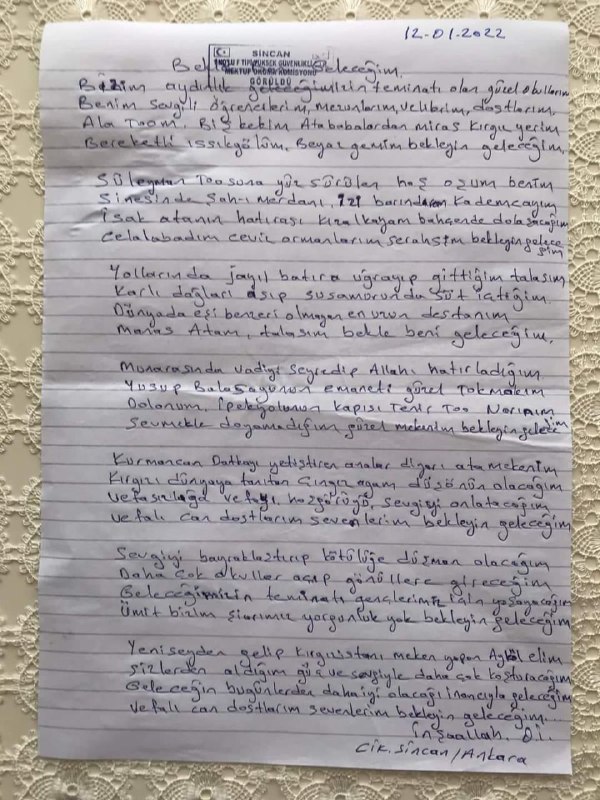 12-01-2022
SİNCAN
1 NOLU F TİPİ YÜKSEK GÜVENLİKLİ
MEKTUP OKUMA KOMİSYONU
GÖRÜLDÜ
Bekle Geleceğim.
Bizim aydınlık geleceğimizin teminatı olan güzel okullarım
Benim sevgili öğrencilerim, mezunlarım, velilerim, dostlarım,
Ala Toom, Bişkekim Atababalardan miras Kırgız yerim
Bereketli ıssıkgölüm, Beyaz gemim bekleyin geleceğim,
Süleyman Toosuna yüz sürülen hoş oşum benim
Sinesinde Şah-ı merdanı, izi barındıran Kademcayım
İsak atanın hatırası kızılkayam bahçende dolaşacağım
Celalabadım ceviz ormanlarım serahsım bekleyin gelece
ğim
Yollarında jayıl batıra uğrayıp gittiğim talasım
Karlı dağları aşıp susamırunda süt içtiğim
Dünyada eşi benzeri olmayan en uzun destanım
Manas Atam, talasım bekle beni geleceğim.
Munarasında vadiyi seyredip Allahı hatırladığım
Yusup Balasagunun emaneti güzel Tokmakım
Dolonum, İpekyolunun kapısı Tenir Too Narınım
Sevmekle doyamadığım güzel mekenim bekleyin gelece
ğim
Kurmancan Datkayı yetiştiren analar diyarı ata mekenim
Kırgızı dünyaya tanıtan Cıngız agam düşünün olacağım
Vefasızlığa vefayı, hoşgörüyü, sevgiyi anlatacağım
Vefalı can dostlarım sevenlerim bekleyin geleceğim
Sevgiyi bayraklaştırıp kötülüğe düşman olacağım
Daha çok okullar açıp gönüllere gireceğim
Geleceğimizin teminatı gençlerimiz için yaşayacağım
Ümit bizim şiarımız yorgunluk yok bekleyin geleceğim
Yeniseyden gelip Kırgızıstanı meken yapan Ayköl elim
Sizlerden aldığım güç ve sevgiyle daha çok koşturacağım
Geleceğin bugünlerden daha iyi olacağı inancıyla geleceğim
Vefalı can dostlarım sevenlerim bekleyin geleceğim...
İnşaallah. O.İ.
Cik. Sincan / Ankara